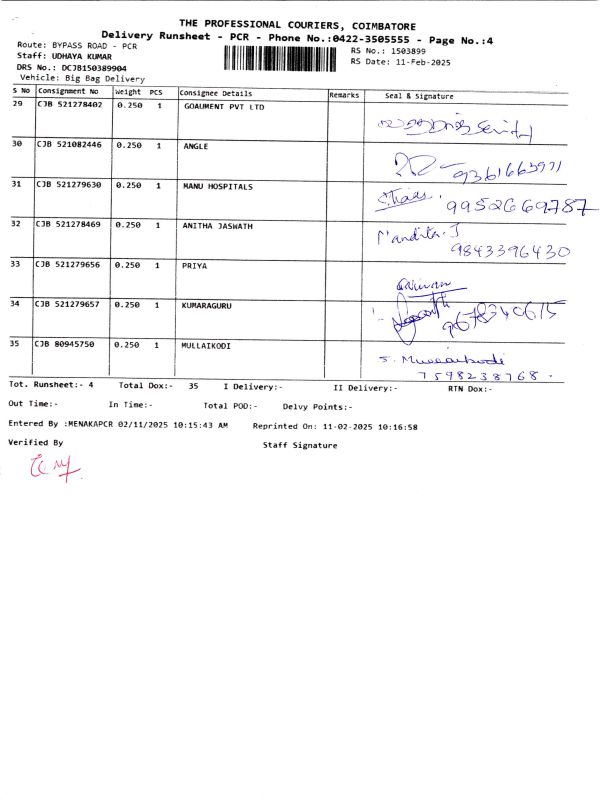 THE PROFESSIONAL COURIERS, COIMBATORE
Delivery Runsheet - PCR - Phone No.:0422-3505555 - Page No.:4
Route: BYPASS ROAD - PCR
RS No.: 1503899
Staff: UDHAYA KUMAR
RS Date: 11-Feb-2025
DRS No.: DCJB150389904
Vehicle: Big Bag Delivery
S No Consignment No Weight PCS Consignee Details Remarks Seal & Signature
29 CJB 521278402 0.250 1 GOAUMENT PVT LTD
30 CJB 521082446 0.250 1 ANGLE
9361663971
31 CJB 521279630 0.250 1 MANU HOSPITALS
9952669787
32 CJB 521278469 0.250 1 ANITHA JASWATH
Nandita. J
9843396430
33 CJB 521279656 0.250 1 PRIYA
34 CJB 521279657 0.250 1 KUMARAGURU
9678340615
35 CJB 80945750 0.250 1 MULLAIKODI
S. Mullaikodi
7598238768.
Tot. Runsheet:- 4 Total Dox:- 35 I Delivery:- II Delivery:- RTN Dox:-
Out Time:- In Time:- Total POD:- Delvy Points:-
Entered By :MENAKAPCR 02/11/2025 10:15:43 AM Reprinted On: 11-02-2025 10:16:58
Verified By Staff Signature